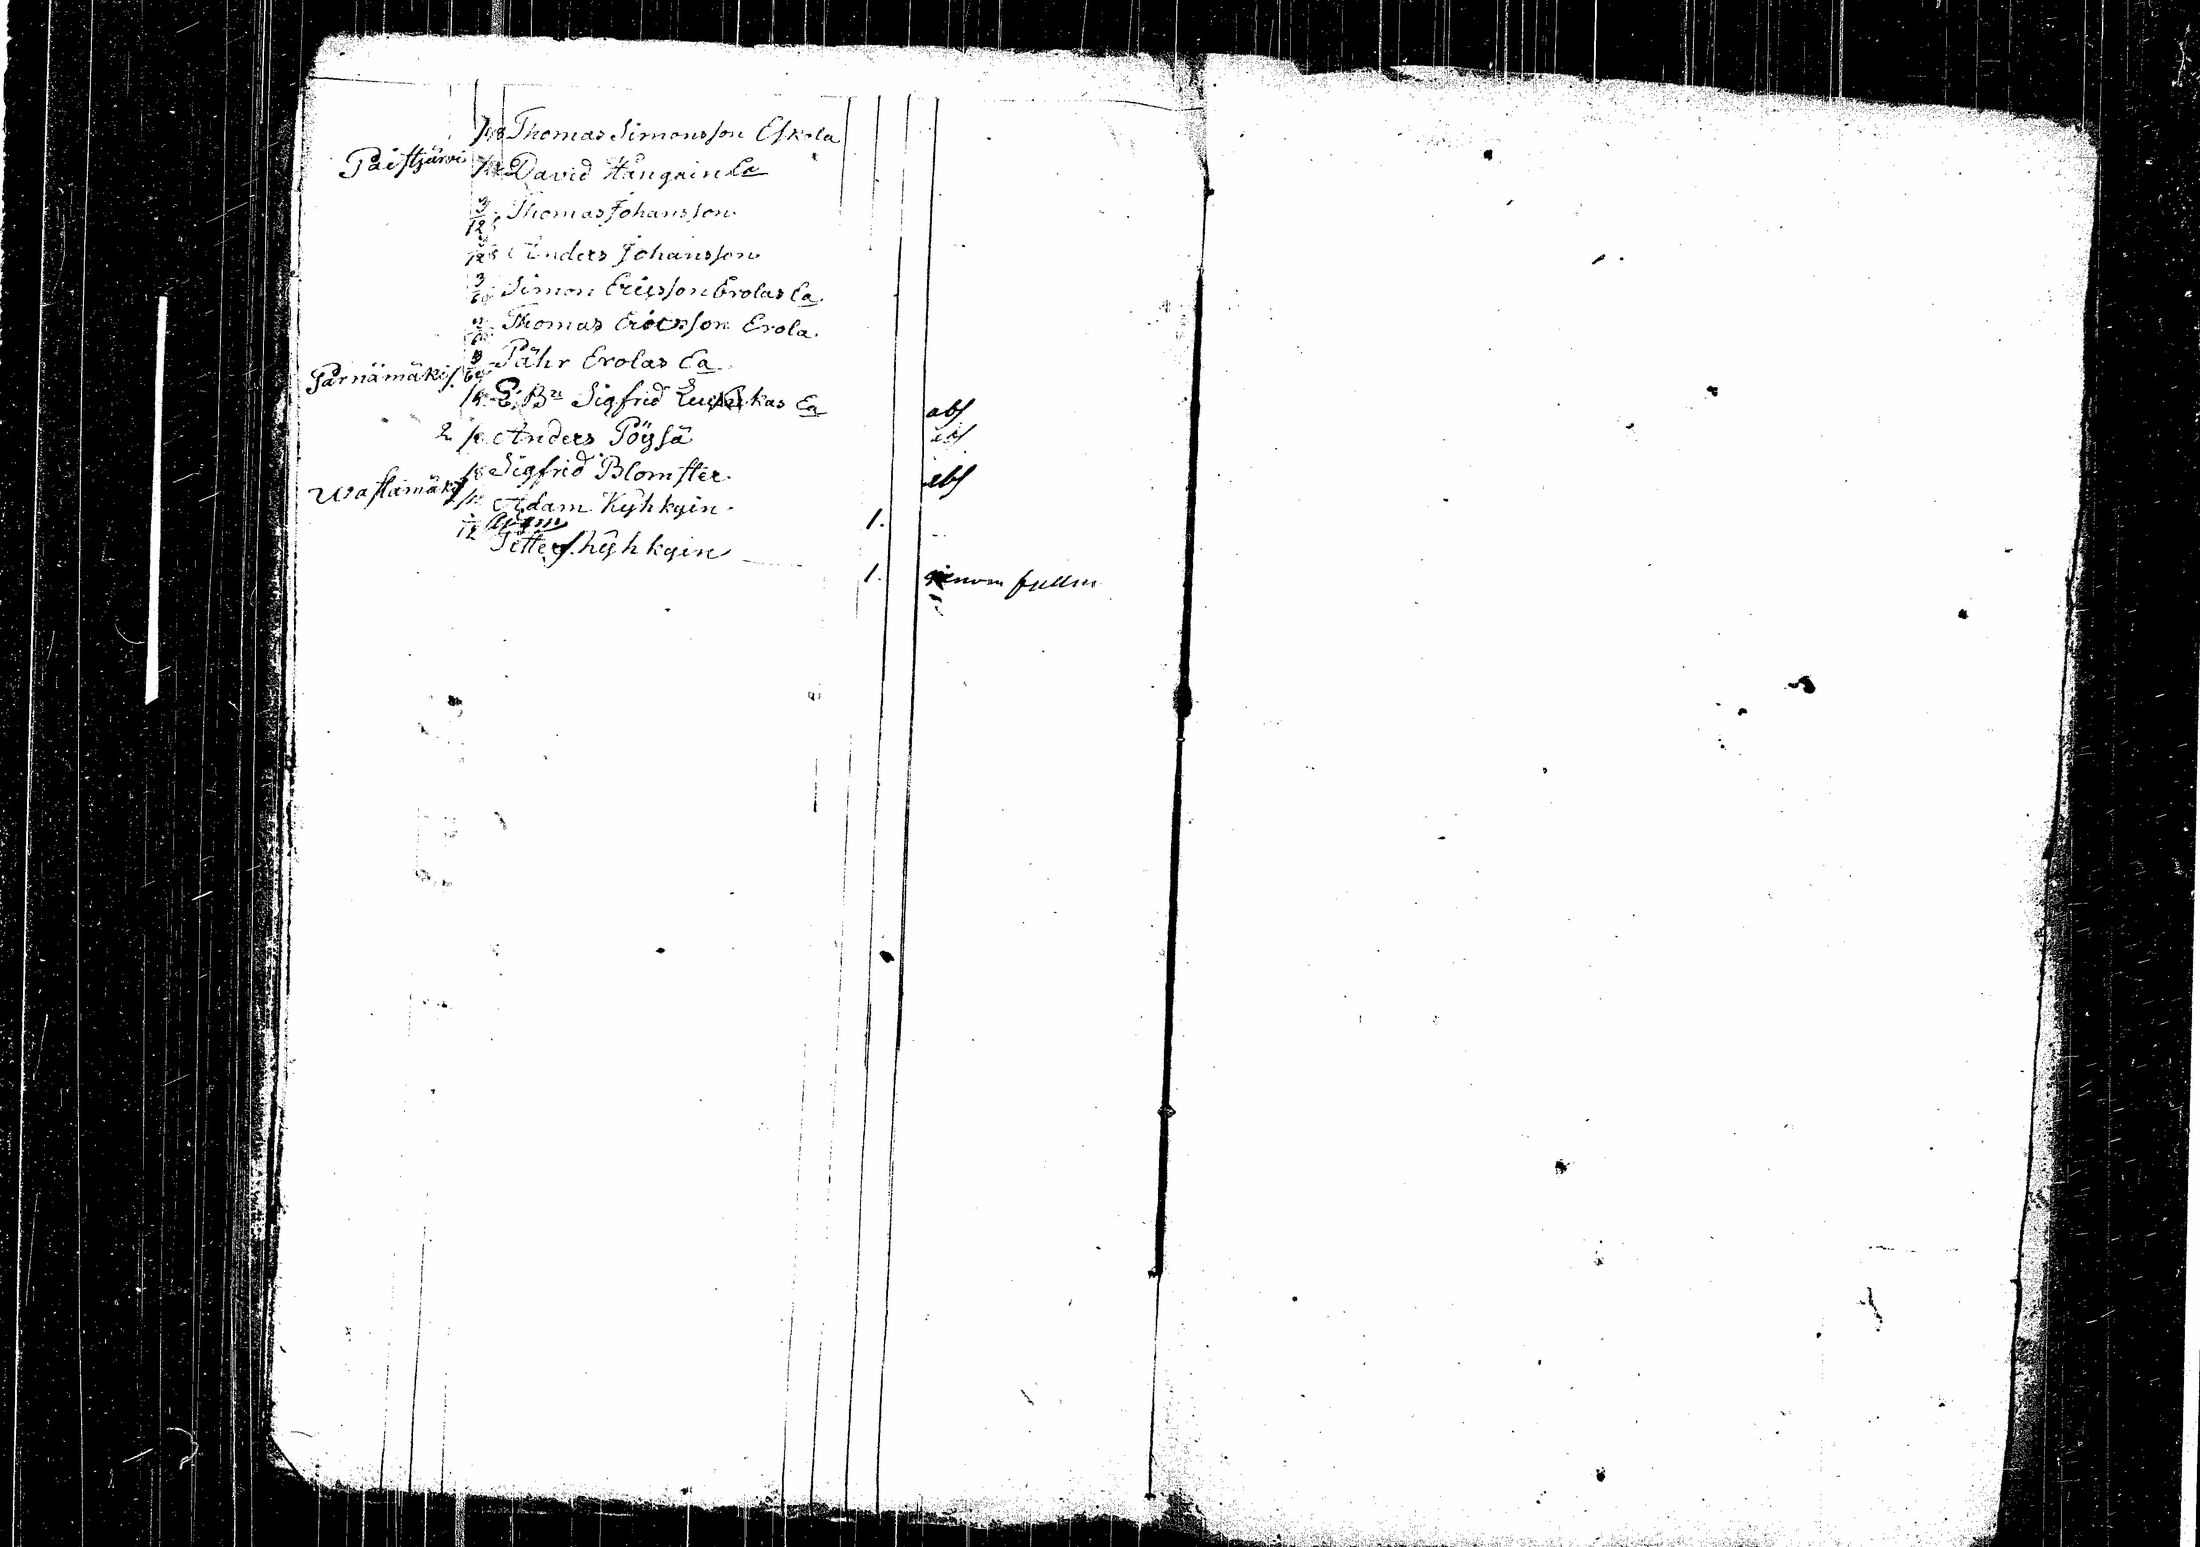 1/48 Thomas Simonsson Eskola
Paistjärvi David Hångain Ea
3/128 Thomas Johansson
Anders Johansson
3/64 Simon Ericsson Erolas Ea
Thomas Ericsson Erola
3/64 Pähr Erolas Ea
Parnämäki
Sigfrid Ea abs
2 Anders Pöysä abs
Sigfrid Blomster abs
Wastamäki
Adam Kyhkyin 1.
1/12 Petter Kyhkyin 1. genom